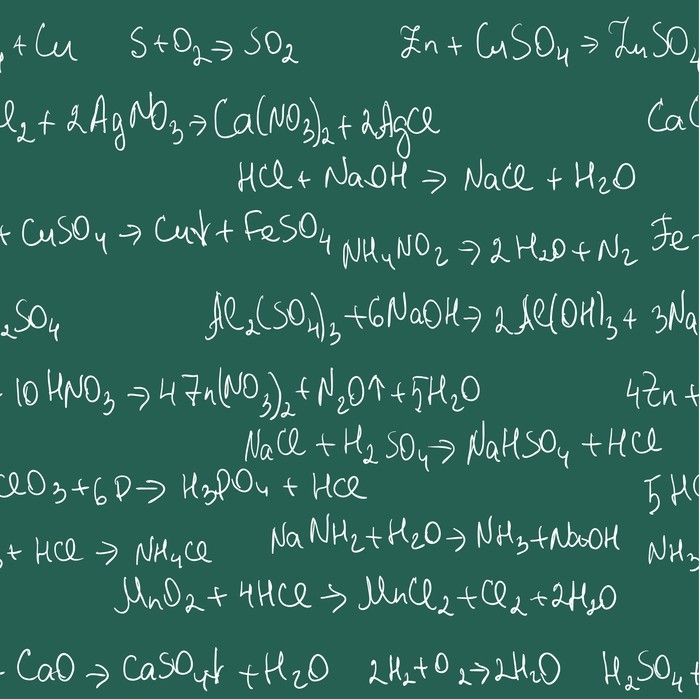 + Cu S + O₂ → SO₂ Zn + CuSO₄ → ZnSO₄
l₂ + 2AgNO₃ → Ca(NO₃)₂ + 2AgCl Ca
HCl + NaOH → NaCl + H₂O
+ CuSO₄ → Cu↓ + FeSO₄ NH₄NO₂ → 2H₂O + N₂ Fe
₂SO₄ Al₂(SO₄)₃ + 6NaOH → 2Al(OH)₃ + 3Na
10HNO₃ → 4Zn(NO₃)₂ + N₂O↑ + 5H₂O 4Zn +
NaCl + H₂SO₄ → NaHSO₄ + HCl
ClO₃ + 6P → H₃PO₄ + HCl 5HC
+ HCl → NH₄Cl NaNH₂ + H₂O → NH₃ + NaOH NH₃
MnO₂ + 4HCl → MnCl₂ + Cl₂ + 2H₂O
CaO → CaSO₄↓ + H₂O 2H₂ + O₂ → 2H₂O H₂SO₄ +